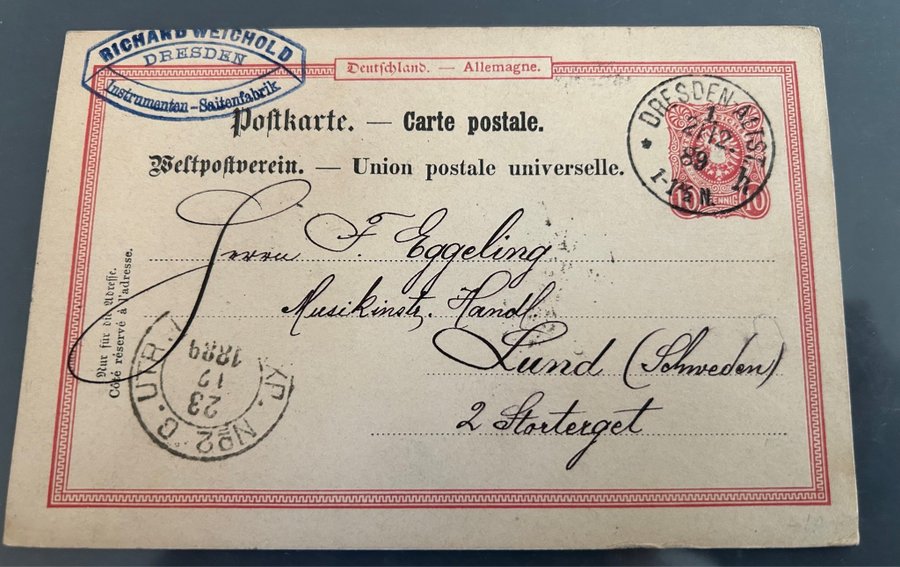 RICHARD WEICHOLD
DRESDEN
Instrumenten-Saitenfabrik
Deutschland. — Allemagne.
Postkarte. — Carte postale.
Weltpostverein. — Union postale universelle.
* DRESDEN-ALTST.
1
21 12
89
1-1½ N.
h
10 PFENNIG 10
Herrn F. Eggeling
Musikinstr. Handl.
Lund (Schweden)
2 Stortorget
Nur für die Adresse.
Côté réservé à l'adresse.
XP. No 2 C. UTR.
23
12
1889